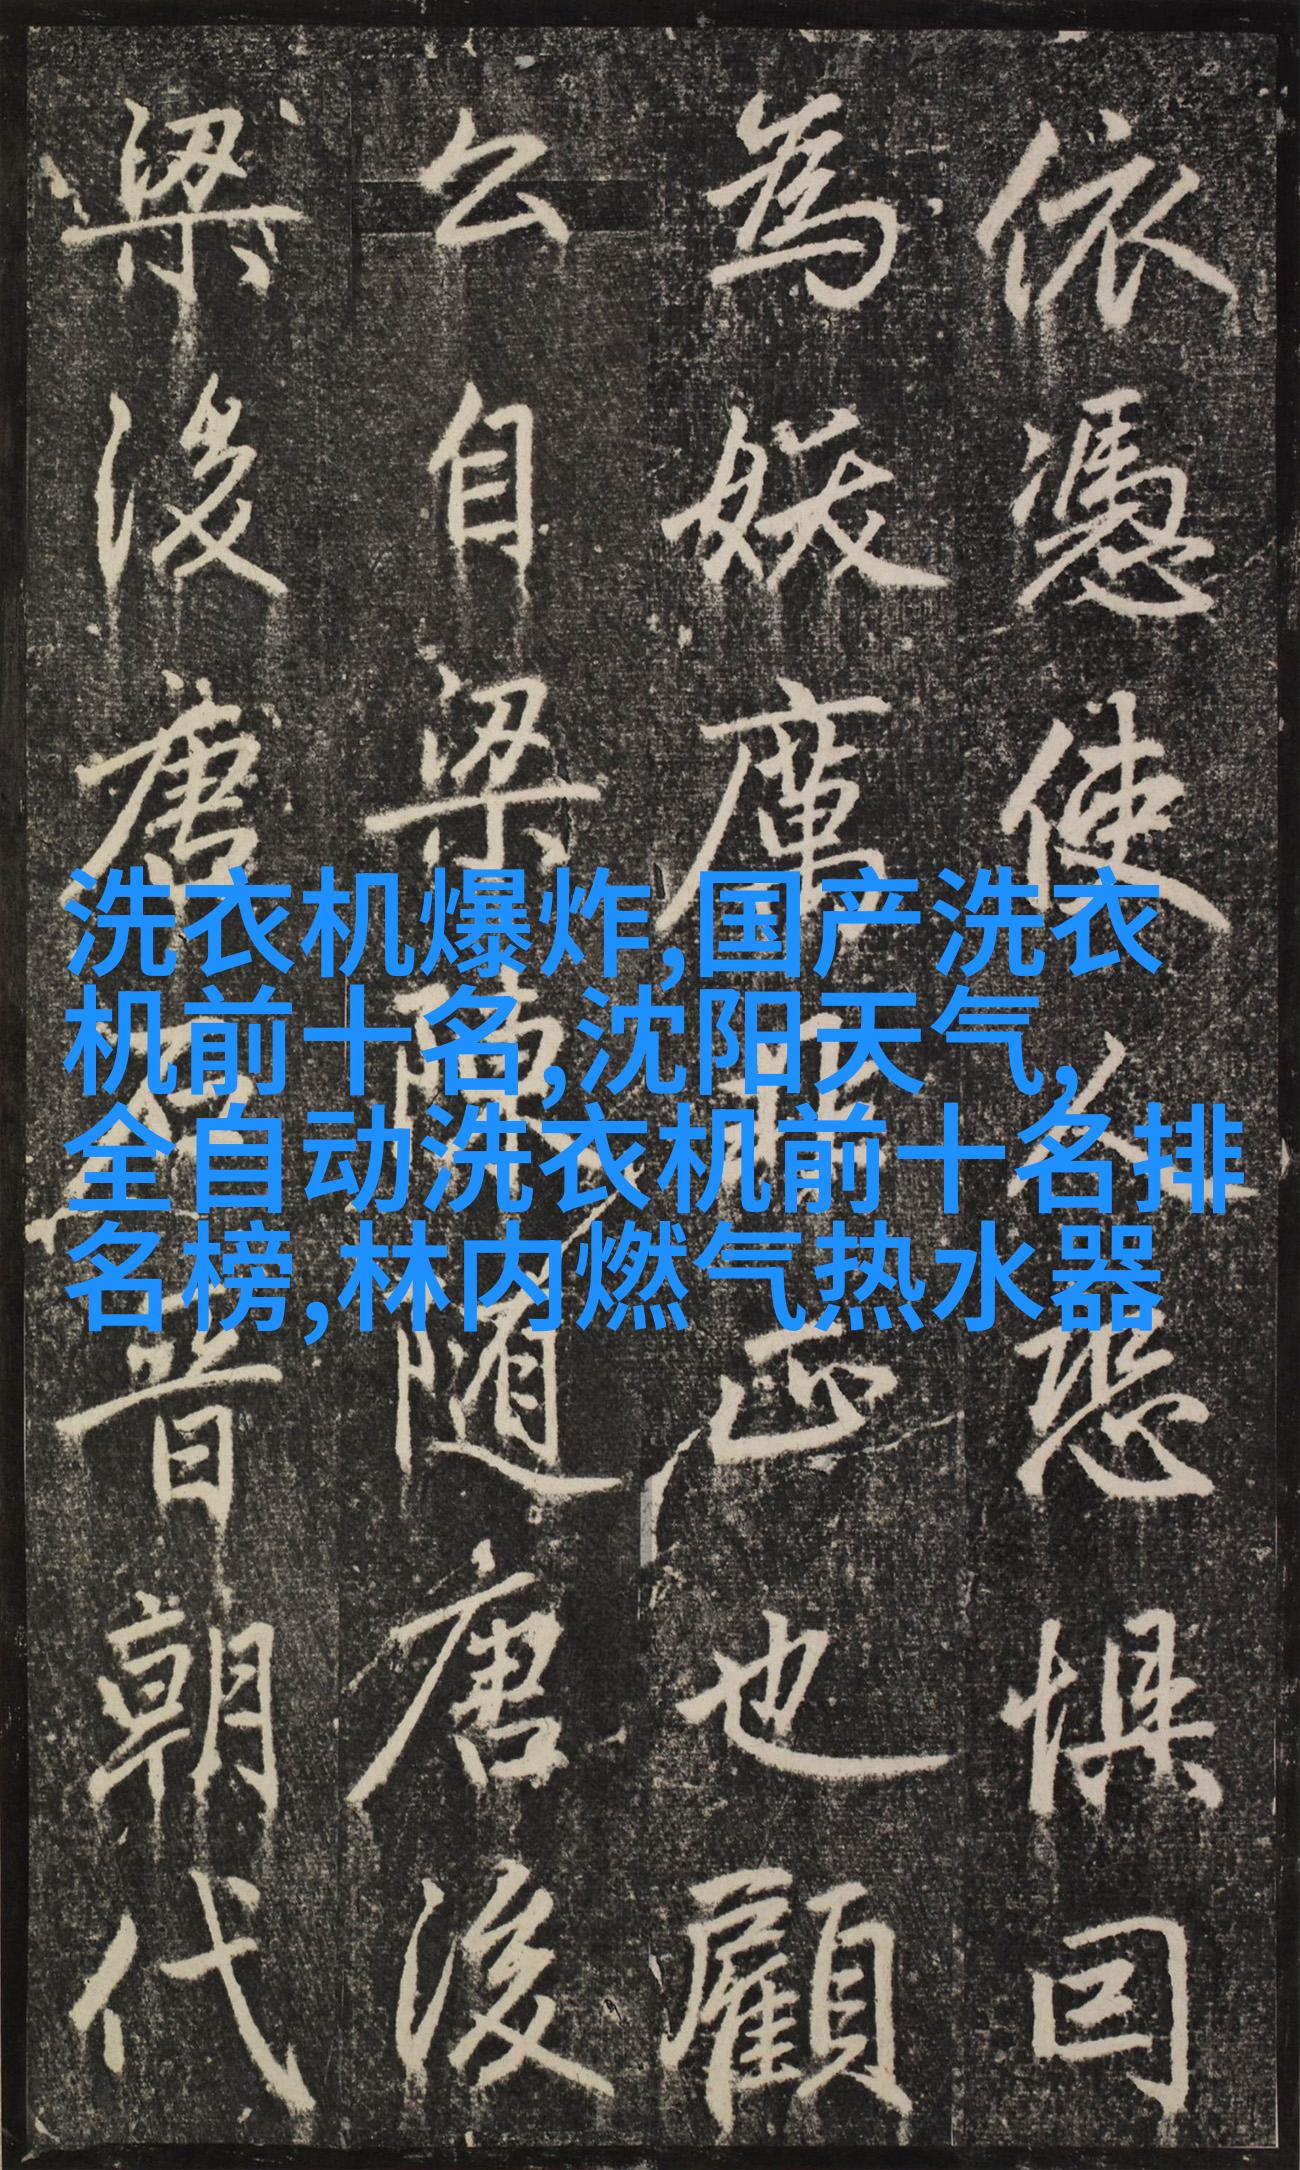 依憑使人恐惧
為妖厲正也顧
公自梁陳随唐後
梁後唐石晉朝代
洗衣机爆炸,国产洗衣
机前十名,沈阳天气,
全自动洗衣机前十名排
名榜,林内燃气热水器